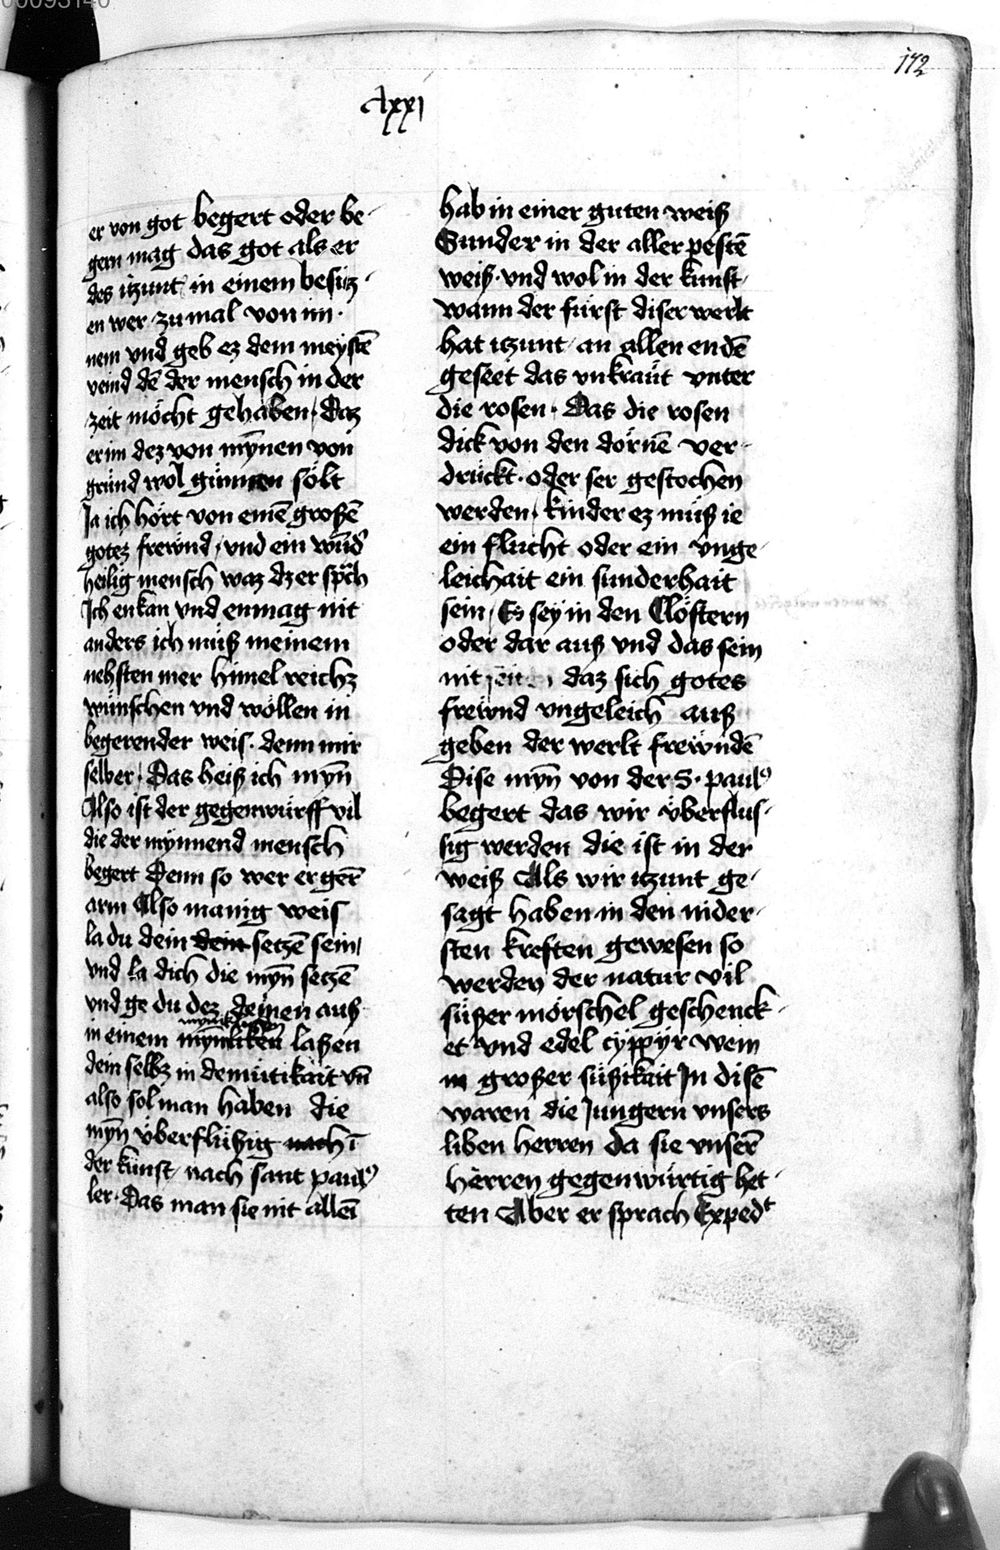 00093140
172
Cxxj
er von got begert oder be-
gern mag das got als er
des itzunt in einem besitz-
en wer zu mal von im
nem vnd geb ez dem meystē
veind dē der mensch in der
zeit möcht gehaben, Daz
er im dez von mȳnen von
gründ wol günnen sölt
Ja ich hört von einē großē
gotez frewnd, vnd ein
heilig mensch waz dz er sprach
Ich enkan vnd enmag nit
anders ich müß meinem
nehsten mer himel reichz
wünschen vnd wöllen in
begerender weis. denn mir
selber. Das heiß ich mȳn
Also ist der gegenwürff vil
die der mynnend mensch
begert Denn so wer er gerē
arm Also manig weis
la du dein dein setzē sein
vnd la dich die mȳn setzē
vnd ge du dez deinen auß
in einem laßen
dein selbz in demütikait vn̄
also sol man haben die
mȳn überflüßig nach ī
der kunst, nach sant paulꝰ
ler. Das man sie nit alleī
hab in einer guten weiß
Sunder in der aller pestē
weiß. vnd wol in der kunst
wann der fürst diser werlt
hat itzunt an allen endē
geseet das vnkraüt vnter
die rosen. Das die rosen
dick von den dörnē ver-
drückt. oder ser gestochen
werden, kinder ez müß ie
ein flucht oder ein vnge-
leichait ein sunderhait
sein, Es sey in den Clöstern
oder dar auß vnd das sein
nit daz sich gotes
frewnd vngeleich auß
geben der werlt frewndē
Dise mȳn von der S. paulꝰ
begert das wir überflus-
sig werden die ist in der
weiß Als wir itzunt ge-
sagt haben in den nider-
sten kreften gewesen so
werden der natur vil
süßer mörschel geschenck-
et vnd edel cyppyr wein
in großer süßikait Jn disē
waren die Jungern vnsers
liben herren da sie vnserē
herren gegenwürtig het-
ten Aber er sprach Expedt